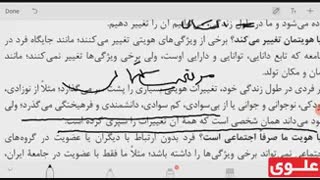 Done
ده می‌شود و ما در طول زندگی آن را تغییر دهیم.
ا هویتمان تغییر می‌کند؟ برخی از ویژگی‌های هویتی تغییر می‌کنند؛ مانند جایگاه فرد در
معه که تابع دانایی، توانایی و دارایی اوست، ولی برخی ویژگی‌ها تغییر نمی‌کنند؛ مانند
مان و مکان تولد.
فردی در طول زندگی خود، تغییرات هویتی بسیاری را پشت سر می‌گذارد؛ مثلاً از نوزادی،
دکی، نوجوانی و جوانی یا از بی‌سوادی، کم سوادی، دانشمندی و فرهیختگی می‌گذرد؛ ولی
ود می‌داند همان شخصی است که همهٔ آن تغییرات را سپری کرده است.
ا هویت ما صرفاً اجتماعی است؟ فرد بدون ارتباط با دیگران یا عضویت در گروه‌های
اجتماعی نمی‌تواند برخی ویژگی‌ها را داشته باشد؛ مثلاً فقط با عضویت در جامعهٔ ایران،
علوی